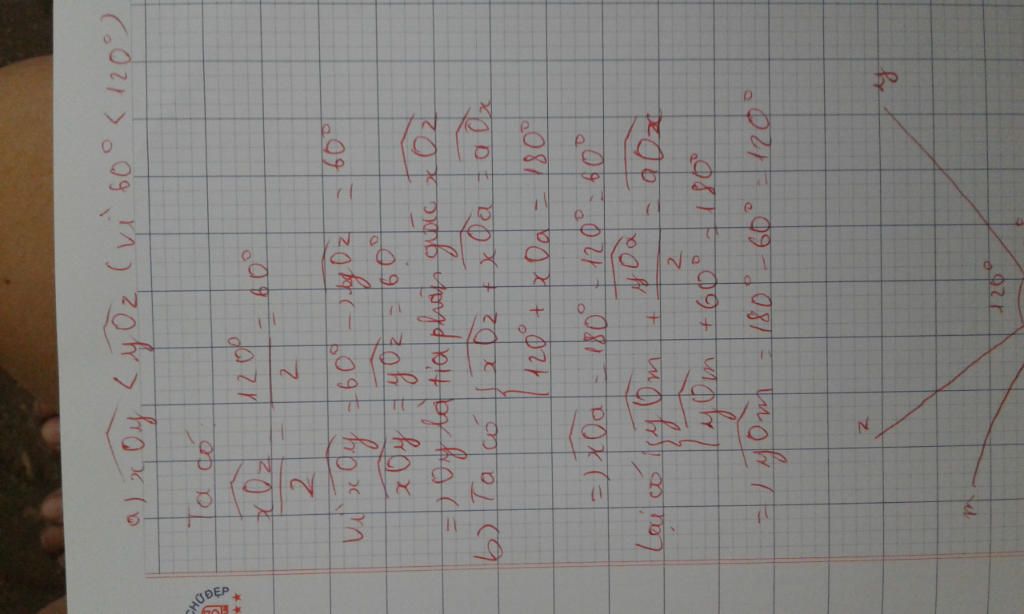 a) xOy < yOz (vì 60° < 120°)
Ta có
xOz/2 = 120°/2 = 60°
Vì xOy = 60° => yOz = 60°
xOy = yOz = 60°
=> Oy là tia phân giác xOz
b) Ta có { xOz + xOa = aOx
{ 120° + xOa = 180°
=> xOa = 180° - 120° = 60°
Lại có { yOm + yOa/2 = aOx
{ yOm + 60° = 180°
=> yOm = 180° - 60° = 120°
z
y
m
120°
CHỮ ĐẸP